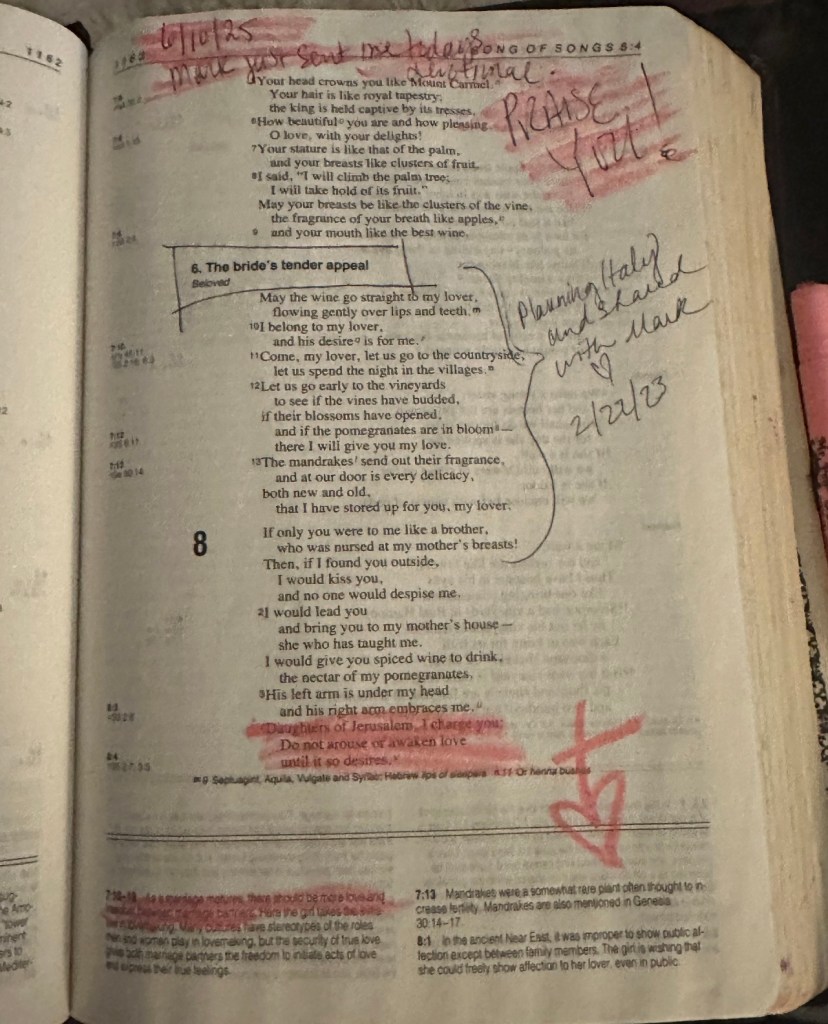 1162
1163
6/10/25
SONG OF SONGS 8:4
Mark just sent me today's
devotional.
PRAISE
YOU!
Your head crowns you like Mount Carmel.
Your hair is like royal tapestry;
the king is held captive by its tresses.
6How beautiful you are and how pleasing,
O love, with your delights!
7Your stature is like that of the palm,
and your breasts like clusters of fruit.
8I said, "I will climb the palm tree;
I will take hold of its fruit."
May your breasts be like the clusters of the vine,
the fragrance of your breath like apples,
9 and your mouth like the best wine.
6. The bride's tender appeal
Beloved
May the wine go straight to my lover,
flowing gently over lips and teeth.m
10I belong to my lover,
and his desire is for me.
11Come, my lover, let us go to the countryside,
let us spend the night in the villages.n
12Let us go early to the vineyards
to see if the vines have budded,
if their blossoms have opened,
and if the pomegranates are in bloom—
there I will give you my love.
13The mandrakes send out their fragrance,
and at our door is every delicacy,
both new and old,
that I have stored up for you, my lover.
Planning Italy
and shared
with Mark
♡
2/22/23
8
If only you were to me like a brother,
who was nursed at my mother's breasts!
Then, if I found you outside,
I would kiss you,
and no one would despise me.
2I would lead you
and bring you to my mother's house—
she who has taught me.
I would give you spiced wine to drink,
the nectar of my pomegranates.
3His left arm is under my head
and his right arm embraces me.
Daughters of Jerusalem, I charge you:
Do not arouse or awaken love
until it so desires.
m9 Septuagint, Aquila, Vulgate and Syriac; Hebrew lips of sleepers n11 Or henna bushes
7:10-13 As a marriage matures, there should be more love and
freedom between marriage partners. Here the girl takes the initiative
in lovemaking. Many cultures have stereotypes of the roles
men and women play in lovemaking, but the security of true love
gives both marriage partners the freedom to initiate acts of love
and express their true feelings.
7:13 Mandrakes were a somewhat rare plant often thought to in-
crease fertility. Mandrakes are also mentioned in Genesis
30:14–17.
8:1 In the ancient Near East, it was improper to show public af-
fection except between family members. The girl is wishing that
she could freely show affection to her lover, even in public.